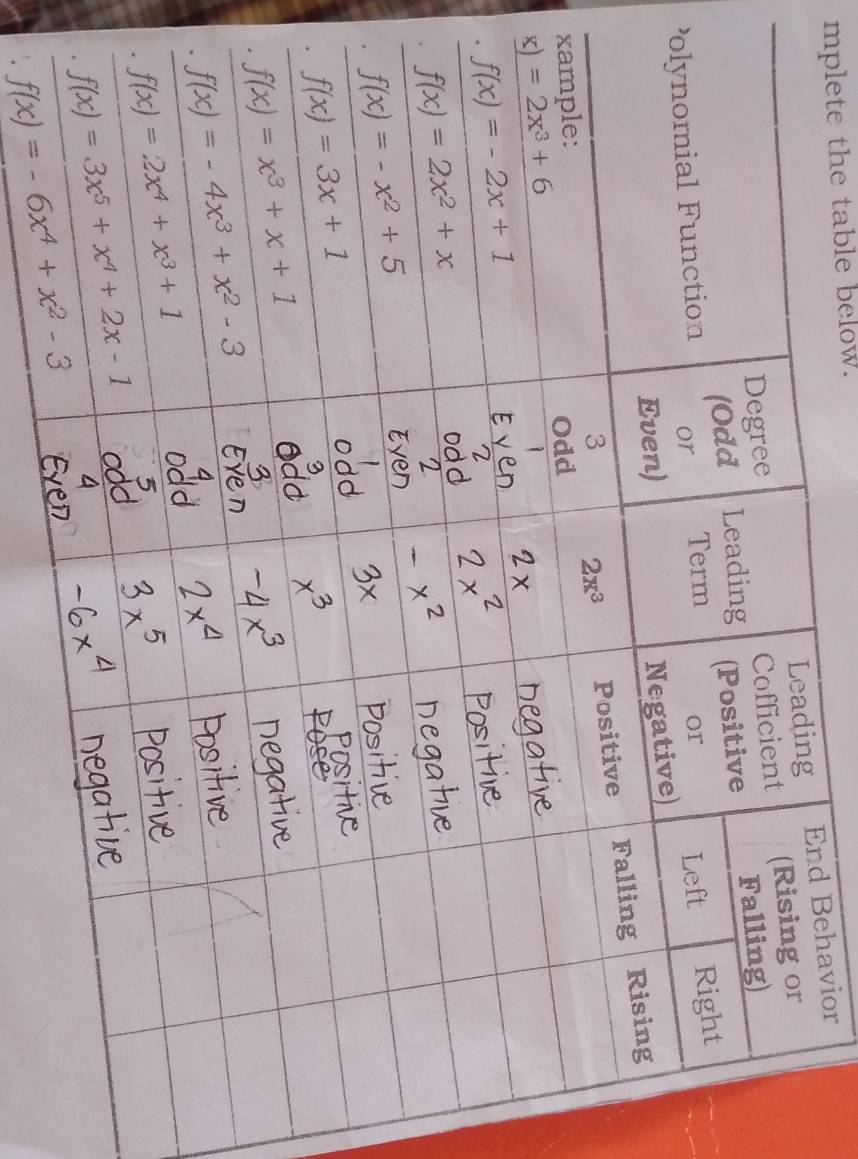 mplete the table below.
Polynomial Function
Degree (Odd or Even)
Leading Term
Leading Cofficient (Positive or Negative)
End Behavior (Rising or Falling)
Left Right
xample:
x) = 2x³ + 6 3 Odd 2x³ Positive Falling Rising
. f(x) = - 2x + 1 1 Even 2x negative
. f(x) = 2x² + x 2 odd 2x² Positive
. f(x) = - x² + 5 2 Even - x² negative
. f(x) = 3x + 1 1 odd 3x Positive
. f(x) = x³ + x + 1 3 odd x³ Positive
. f(x) = - 4x³ + x² - 3 3 Even -4x³ negative
. f(x) = 2x⁴ + x³ + 1 4 odd 2x⁴ Positive
. f(x) = 3x⁵ + x⁴ + 2x - 1 5 odd 3x⁵ Positive
. f(x) = - 6x⁴ + x² - 3 4 Even -6x⁴ negative